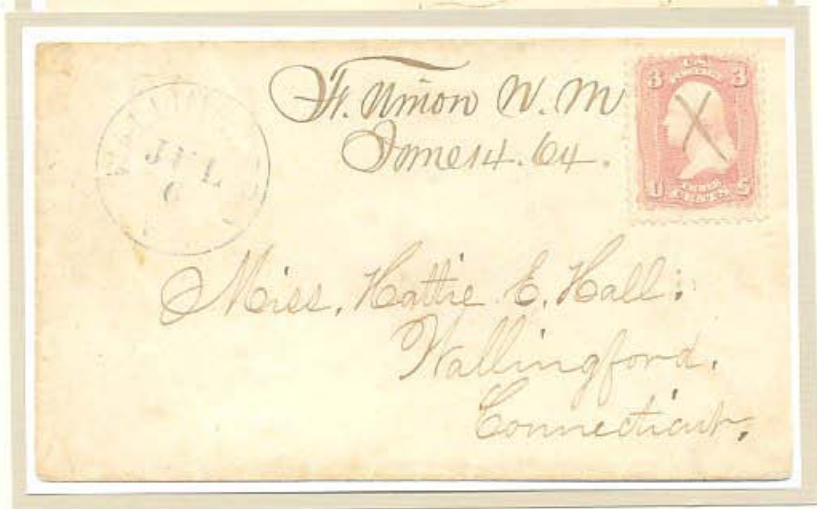 Ft. Union N. M
June 14. 64.
WALLINGFORD
JUL
6
3 U.S. 3
POSTAGE
U THREE S
CENTS
X
Miss. Hattie E. Hall.
Wallingford.
Connecticut,